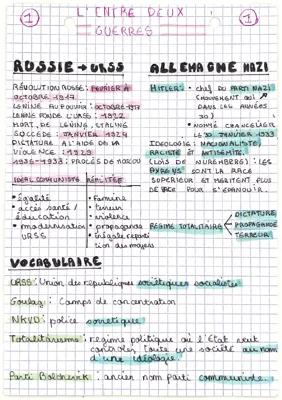 1
L'ENTRE DEUX
GUERRES
1
RUSSIE → URSS
RÉVOLUTION RUSSE : FÉVRIER À
OCTOBRE 1917
LENINE AU POUVOIR : OCTOBRE 1917
LENINE FONDE L'URSS : 1922
MORT DE LENINE, STALINE
SUCCEDE : JANVIER 1924
DICTATURE À L'AIDE DE LA
VIOLENCE : 1929
1936-1938 : PROCÈS DE MOSCOU
IDEAL COMMUNISTE
• égalité
• accès santé /
éducation
• modernisation
URSS
RÉALITÉE
• Famine
• terreur
• violence
• propagande
• inégale réparti
tion des moyens
ALLEMAGNE NAZI
HITLER : • chef du PARTI NAZI
(MOUVEMENT QUI
DANS LES ANNÉES
30)
• NOMMÉ CHANCELIER
LE 30 JANVIER 1933
IDEOLOGIE : NATIONALISTE,
RACISTE ET ANTISÉMITE.
(LOIS DE NUREMBERG) : LES
SONT LA RACE
SUPERIEUR ET MERITENT PLUS
DE PLACE POUR S'EPANOUIR.
RÉGIME TOTALITAIRE
DICTATURE
PROPAGANDE
TERREUR
VOCABULAIRE
URSS : Union des républiques soviétiques socialistes
Goulag : Camps de concentration
NKVD : police sovietique
Totalitarisme : regime politique où l'Etat veut
contrôler toute une société au nom
d'une idéologie.
Parti Bolchevik : ancien nom parti communiste.